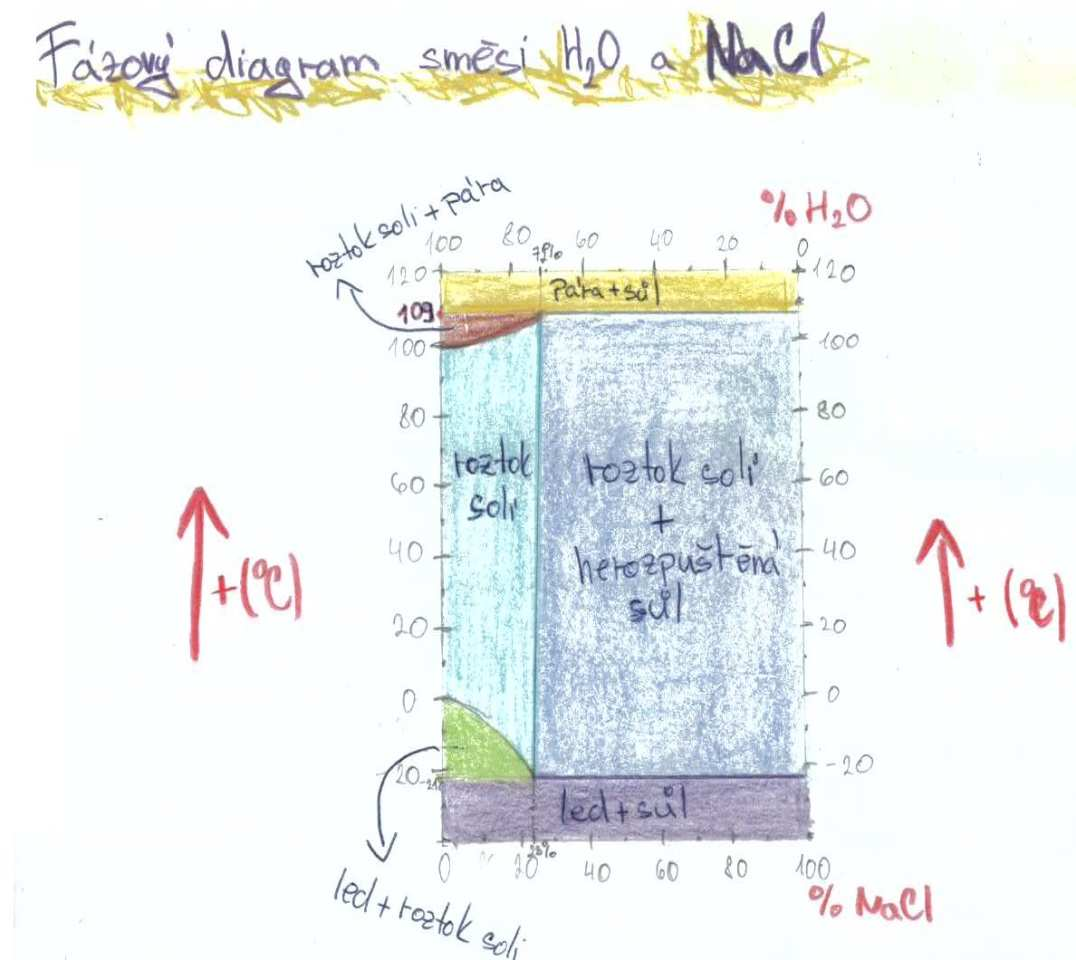 Fázový diagram směsi H₂O a NaCl
roztok soli + pára
% H₂O
100 80 60 40 20 0
120
Pára + sůl
120
109
100
100
80
80
roztok
soli
roztok soli
+
nerozpuštěná
sůl
60
60
40
40
+(°C)
+ (°C)
20
20
0
0
-20
-20
led + sůl
0 20 23% 40 60 80 100
led + roztok soli
% NaCl